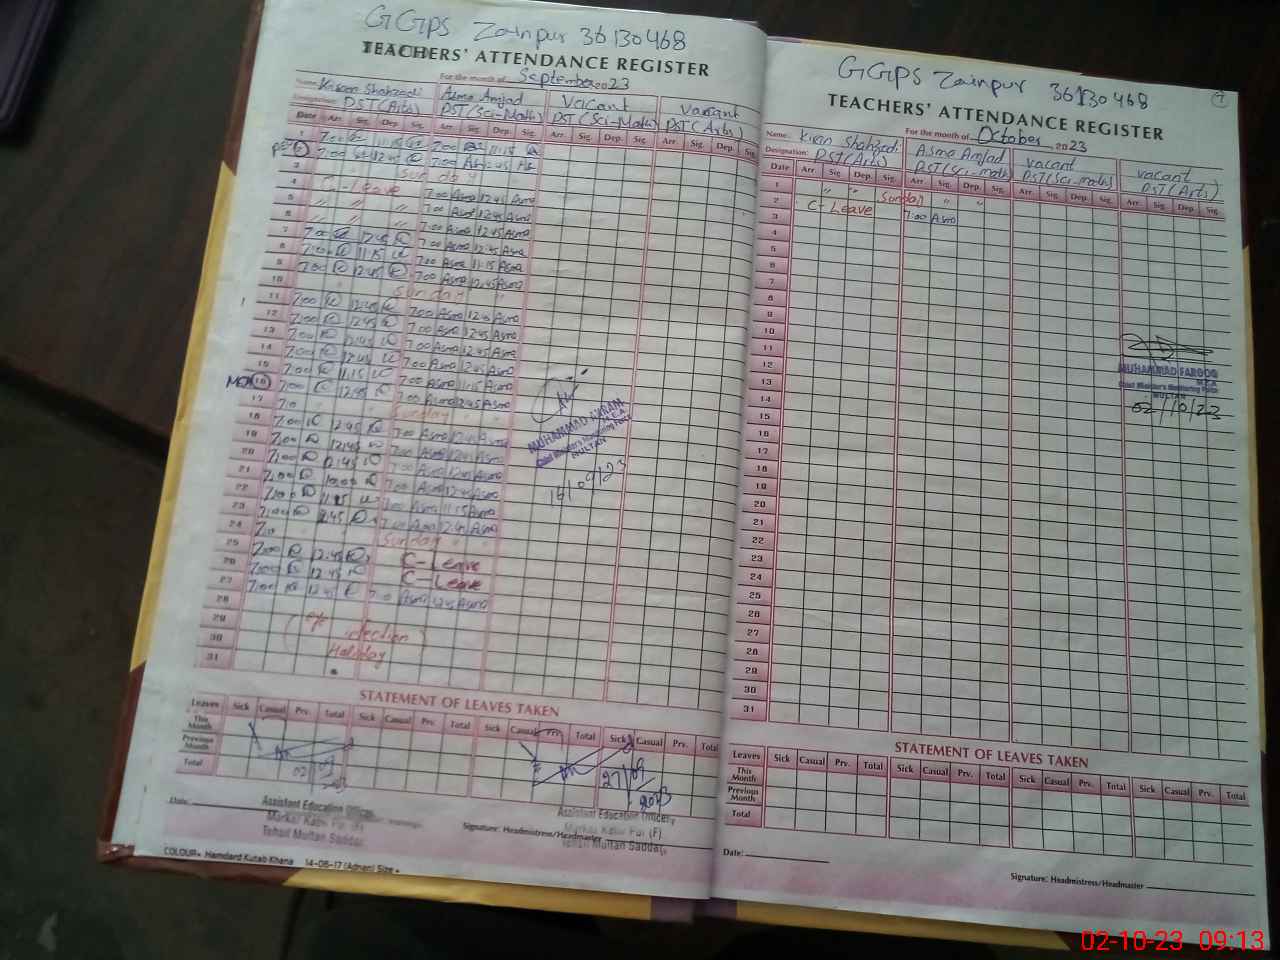 GGPS Zainpur 36130468
TEACHERS' ATTENDANCE REGISTER
For the month of September 2023
Name: Kiran Shahzadi Asma Amjad Vacant Vacant
Designation: PST (Arts) PST (Sci-Math) PST (Sci-Math) PST (Arts)
Date Arr. Sig. Dep. Sig. Arr. Sig. Dep. Sig. Arr. Sig. Dep. Sig. Arr. Sig. Dep. Sig.
1 7:00 11:15 7:00 11:15
2 7:00 12:45 7:00 12:45
3 Sunday
4 C-Leave 7:00 Asma 12:45 Asma
5 " " " 7:00 Asma 12:45 Asma
6 " " " 7:00 Asma 12:45 Asma
7 7:00 12:45 7:00 Asma 12:45 Asma
8 7:00 11:15 7:00 Asma 11:15 Asma
9 7:00 12:45 7:00 Asma 12:45 Asma
10 Sunday "
11 7:00 12:45 7:00 Asma 12:45 Asma
12 7:00 12:45 7:00 Asma 12:45 Asma
13 7:00 12:45 7:00 Asma 12:45 Asma
14 7:00 12:45 7:00 Asma 12:45 Asma
15 7:00 11:15 7:00 Asma 11:15 Asma
16 7:00 12:45 7:00 Asma 12:45 Asma
17 Sunday
18 7:00 12:45 7:00 Asma 12:45 Asma
19 7:00 12:45 7:00 Asma 12:45 Asma
20 7:00 12:45 7:00 Asma 12:45 Asma
21 7:00 7:00 Asma 12:45 Asma
22 7:00 11:15 7:00 Asma 11:15 Asma
23 7:00 12:45 7:00 Asma 12:45 Asma
24 Sunday
25 7:00 12:45 C-Leave
26 7:00 12:45 C-Leave
27 7:00 12:45 7:00 Asma 12:45 Asma
28
29
30 infection
31 Holiday
MUHAMMAD IKRAM
M.E.A
Chief Minister's Monitoring Force
MULTAN
16/09/23
STATEMENT OF LEAVES TAKEN
Leaves Sick Casual Prv. Total Sick Casual Prv. Total Sick Casual Prv. Total Sick Casual Prv. Total
This Month
Previous Month
Total
27/09/2023
Date:
Assistant Education Officer
Markaz Kabir Pur (F)
Tehsil Multan Saddar
Signature: Headmistress/Headmaster
Assistant Education Officer
Markaz Kabir Pur (F)
Tehsil Multan Saddar
COLOUR Hamdard Kutab Khana 14-06-17 (Adnan) Size
GGPS Zainpur 36130468
TEACHERS' ATTENDANCE REGISTER
For the month of October 2023
Name: Kiran Shahzadi Asma Amjad vacant vacant
Designation: PST (Arts) PST (Sci-math) PST (Sci-math) PST (Arts)
Date Arr. Sig. Dep. Sig. Arr. Sig. Dep. Sig. Arr. Sig. Dep. Sig. Arr. Sig. Dep. Sig.
1 " " Sunday " "
2 C-Leave 7:00 Asma
3
4
5
6
7
8
9
10
11
12
13
14
15
16
17
18
19
20
21
22
23
24
25
26
27
28
29
30
31
MUHAMMAD FAROOQ
M.E.A
Chief Minister's Monitoring Force
MULTAN
02/10/23
STATEMENT OF LEAVES TAKEN
Leaves Sick Casual Prv. Total Sick Casual Prv. Total Sick Casual Prv. Total Sick Casual Prv. Total
This Month
Previous Month
Total
Date:
Signature: Headmistress/Headmaster
02-10-23 09:13